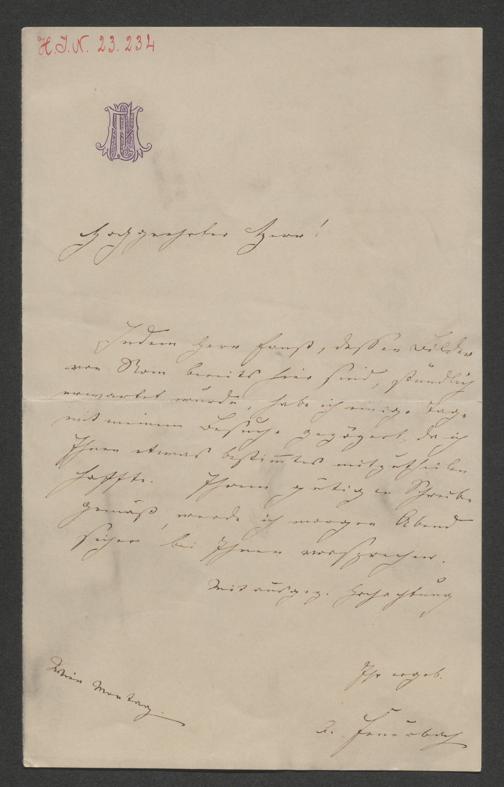 H.I.N. 23.234
Hochgeehrter Herr!
Indem Herr Faust, dessen Bilder
von Rom bereits hier sind, stündlich
erwartet wurde, habe ich einige Tage
mit meinem Besuche gezögert, da ich
Ihnen etwas bestimmtes mitzutheilen
hoffte. Ihrem gütigen Schreiben
gemäß, werde ich morgen Abend
sicher bei Ihnen vorsprechen.
Mit ausgez. Hochachtung
Ihr ergeb.
A. Feuerbach
Wien Montag.